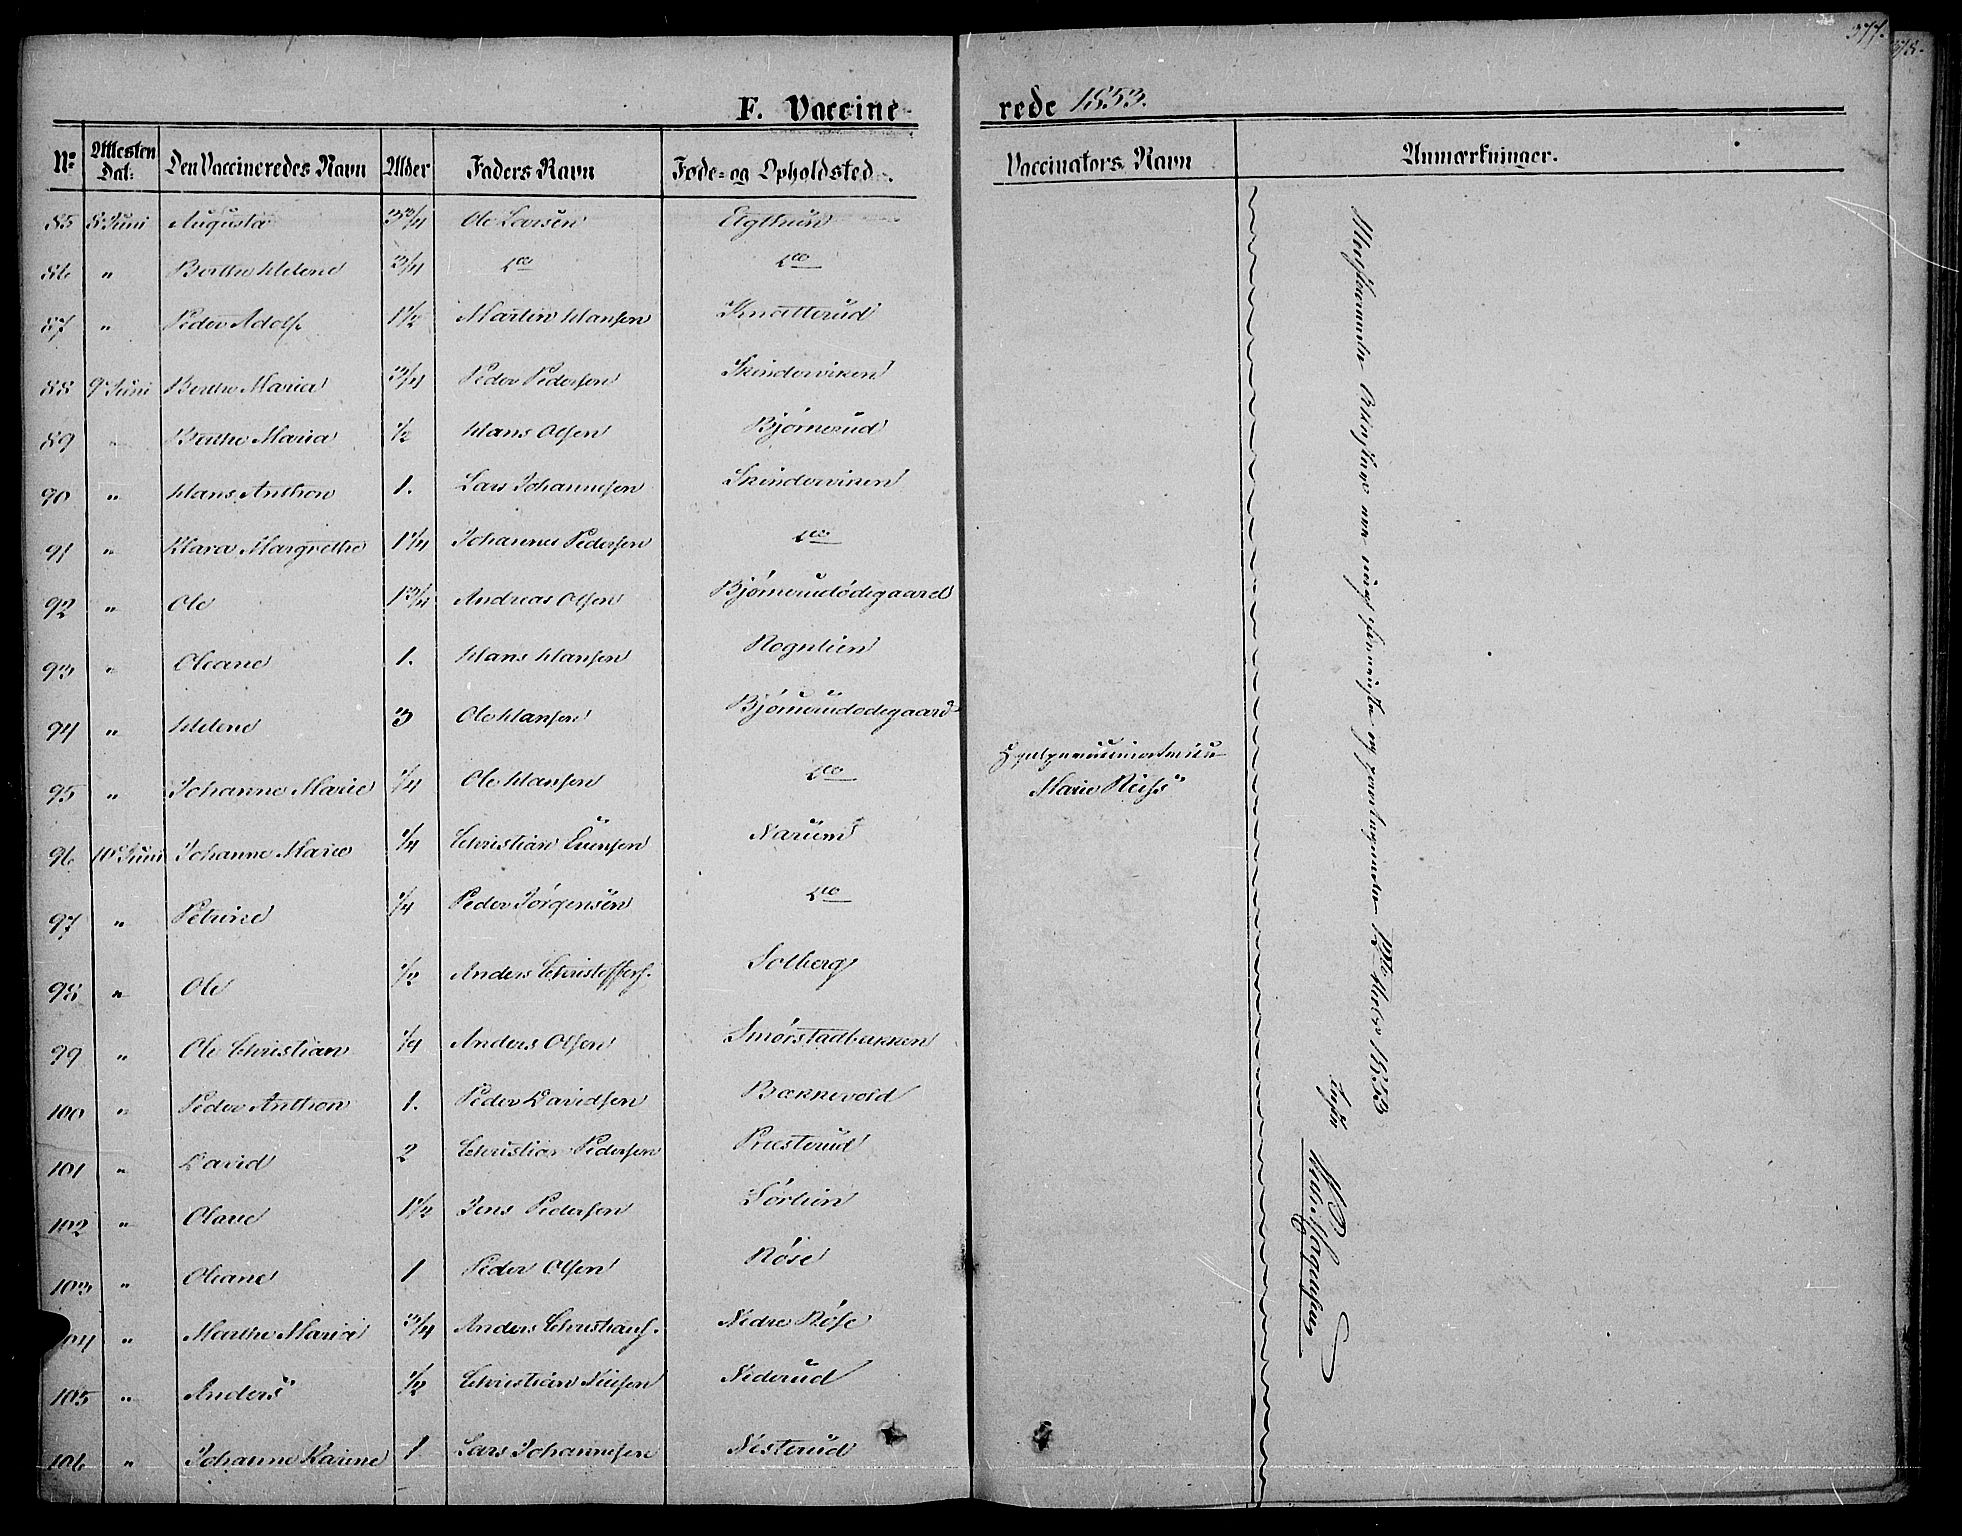 377.
378.
F. Vaccine-
rede 1853.
No Attesten Dat: Den Vaccineredes Navn Alder Faders Navn Føde- og Opholdsted. Vaccinators Navn Anmærkninger.
85 8 Juni Augusta 3 3/4 Ole Larsen
86 " Berthe Helene 3/4 do do
87 " Peder Adolf 1 1/2 Martin Hansen Knatterud
88 9 Juni Berthe Maria 3/4 Peder Pedersen Skinderviken
89 " Berthe Maria 1/2 Hans Olsen Bjømerud
90 " Hans Anthon 1. Lars Johannesen Skinderviken
91 " Klara Margrethe 1 1/4 Johannes Pedersen do
92 " Ole 1 3/4 Andreas Olsen Bjømerudødegaard
93 " Oleane 1. Hans Hansen Rognlien
94 " Helene 3 Ole Hansen Bjømerudødegaard
95 " Johanne Marie 1/4 Ole Hansen do
Marie Reiss
96 10 Juni Johanne Marie 1/4 Christian Narum
97 " Petrine 1/4 Peder Jørgensen do
98 " Ole 1/2 Anders Christoffers. Solberg
99 " Ole Christian 1/4 Anders Olsen Smørstadbakken
100 " Peder Anthon 1. Peder Davidsen Bækkevold
101 " David 2 Christian Pedersen Præsterud
102 " Olave 1 1/2 Jens Pedersen Sørlien
103 " Oleane 1 Peder Olsen Røse
104 " Marthe Maria 3/4 Anders Christians. Nedre Røse
105 " Anders 1/2 Christian Niels­en Niderud
106 " Johanne Karine 1 Lars Johannesen Nesterud
1853